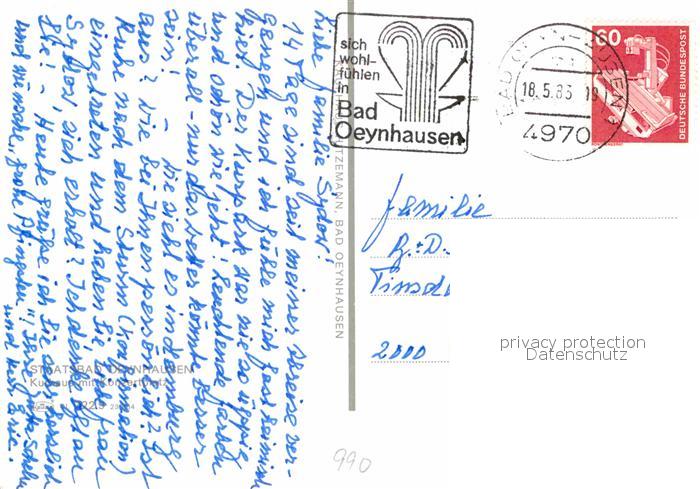 Liebe Familie Sydow!
14 Tage sind seit meiner Abreise ver-
gangen und ich fühle mich fast heimisch
hier. Der Kurpark war nie so üppig
und schön wie jetzt! Leuchtende Farben
überall - nur das Wetter könnte besser
sein! - Wie sieht es in Hamburg
aus? Wie bei Ihnen persönlich? Ist
Ruhe nach dem Sturm (Konfirmation)
eingetreten und haben Sie, liebe Frau
Sydow, sich erholt? Ich denke oft an
Sie! - Heute grüße ich Sie alle herzlich
und wünsche "frohe Pfingsten"!
und herz
STAATSBAD OEYNHAUSEN
Kurhaus mit Konzertplatz
BAD OEYNHAUSEN
sich
wohl-
fühlen
in
Bad
Oeynhausen
BAD OEYNHAUSEN 1
18.5.83
4970
60
DEUTSCHE BUNDESPOST
Familie
2000
privacy protection
Datenschutz
990